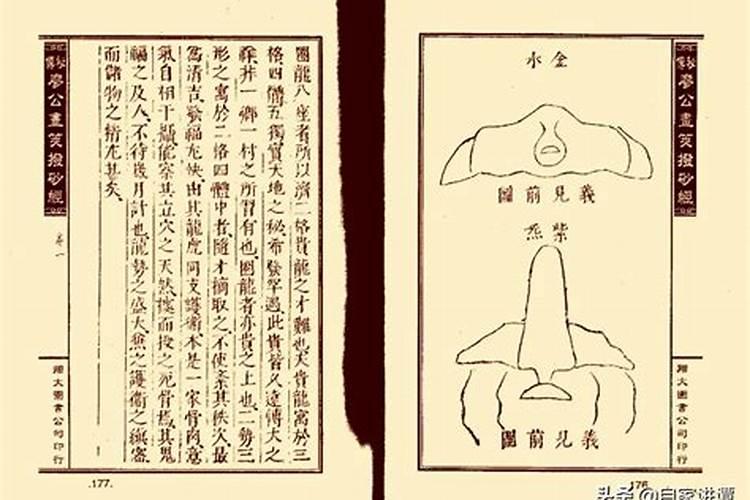 秘傳廖公畫筴撥砂經
金水
義見前圖
紫炁
義見前圖
翔大圖書公司印行
176
圖龍八座者所以濟二格貴龍之才難也夫貴龍寓於三
格四體五獨實天地之秘希發罕遇此貴皆久遠傳大之
一鄉一村之所習有也圖龍者亦貴之上也二勢三
形之寓於二格四體中者隨才摘取之不使紊其秩次最
爲清吉發福尤快由其龍虎同支護衛本是一家骨肉意
氣自相干攝能穿其立穴之天然據而投之死骨其鬼
福之及人不待幾月計也龍勢之盛大無之護衛之
而儲物之精尤甚矣
秘傳廖公畫筴撥砂經
卷一
翔大圖書公司印行
.177.
头条 @自家讲谭